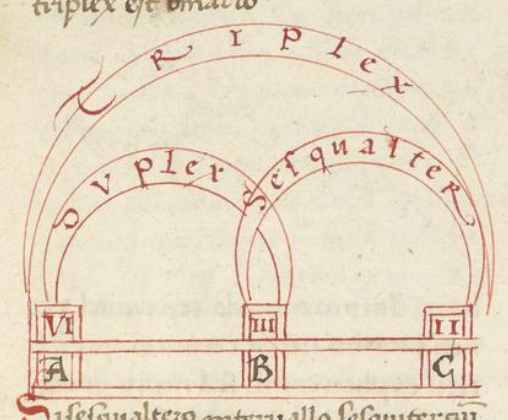 triplex est binario
TRIPLex
DVplex
Sesqualter
VI III II
A B C
Si sesqualtero interuallo sesquitertiū